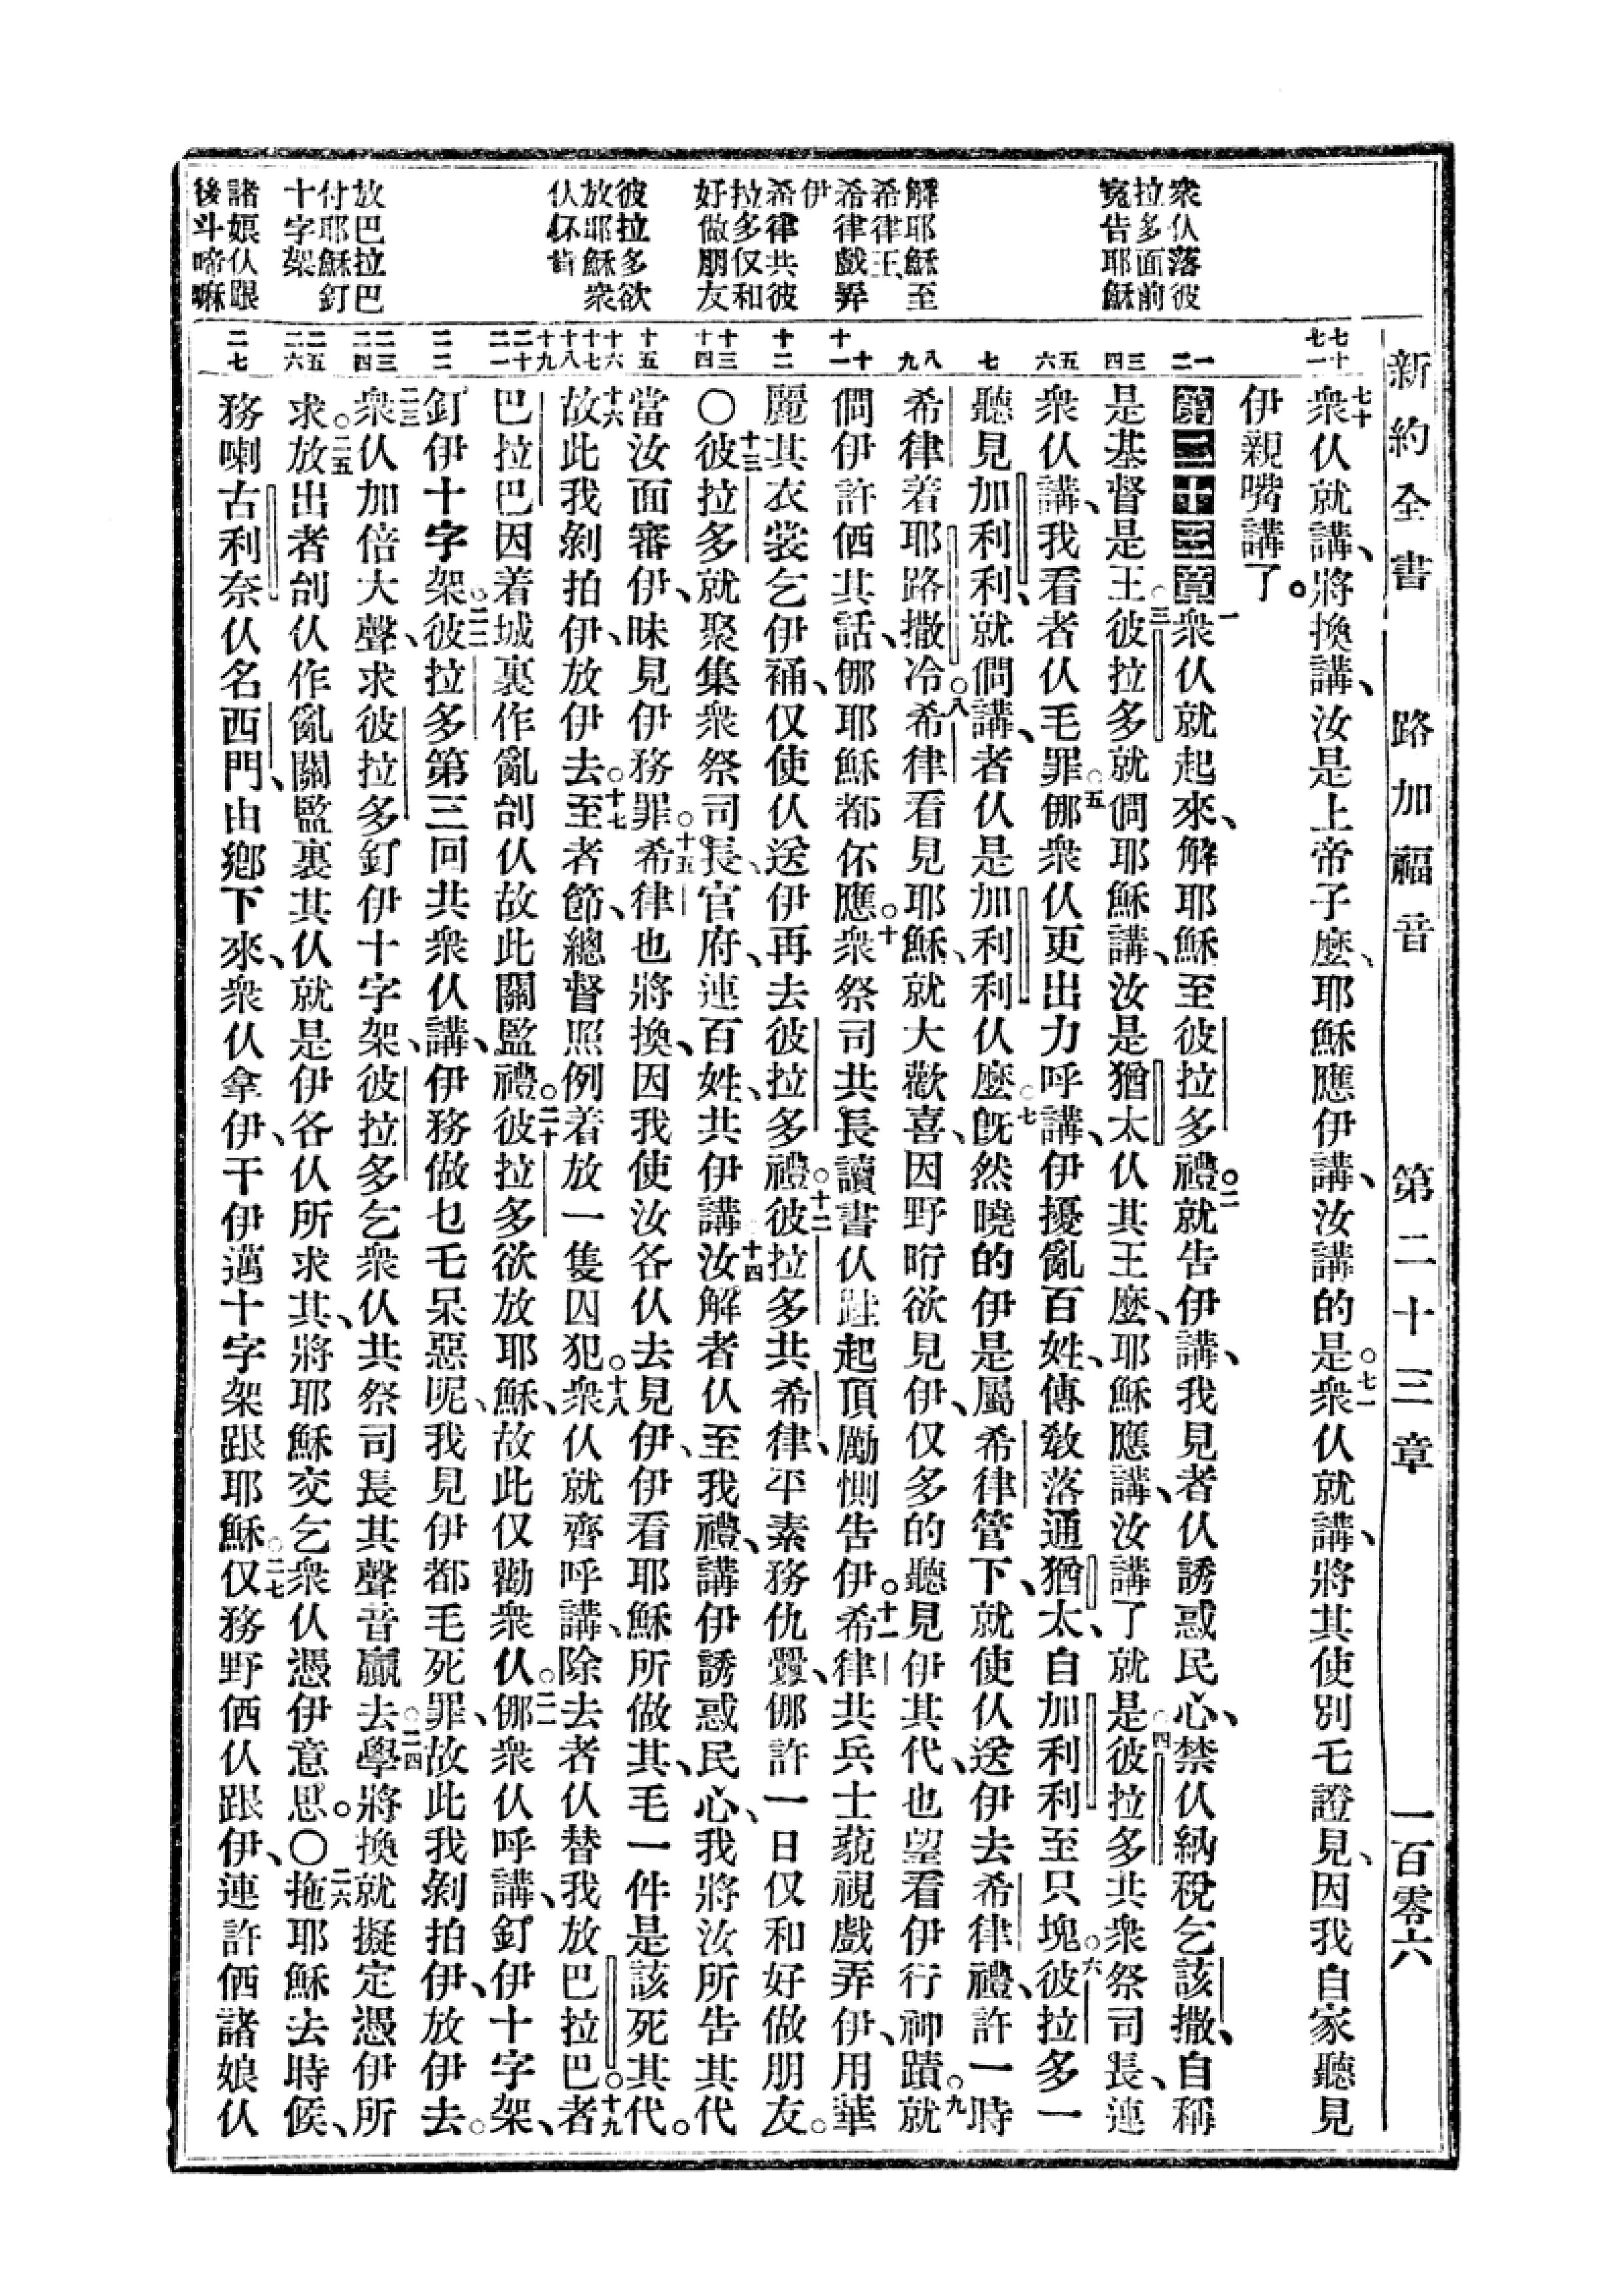 新約全書　路加福音　第二十三章　一百零六
衆仈落彼
拉多面前
冤告耶穌
解耶穌至
希律王、
希律戲弄
伊
希律共彼
拉多仅和
好做朋友
彼拉多欲
放耶穌衆
仈伓肯
放巴拉巴
付耶穌釘
十字架
諸娘仈跟
後斗啼嘛
七十
七一
一
二
三
四
五
六
七
八
九
十
十一
十二
十三
十四
十五
十六
十七
十八
十九
二十
二一
二二
二三
二四
二五
二六
二七
七十衆仈就講、將換講、汝是上帝子麽、耶穌應伊講、汝講的是。七一衆仈就講、將其使別乇證見、因我自家聽見
伊親嘴講了。
第二十三章一衆仈就起來、解耶穌至彼拉多禮。二就告伊講、我見者仈誘惑民心、禁仈納稅乞該撒、自稱
是基督是王。三彼拉多就僩耶穌講、汝是猶太仈其王麽、耶穌應講、汝講了就是。四彼拉多共衆祭司長、連
衆仈講、我看者仈毛罪。五㑚衆仈更出力呼講、伊擾亂百姓、傳敎落通猶太、自加利利至只塊。六彼拉多一
聽見加利利、就僩講、者仈是加利利仈麽。七旣然曉的伊是屬希律管下、就使仈送伊去希律禮、許一時
希律着耶路撒冷。八希律看見耶穌、就大歡喜、因野晍欲見伊、仅多的聽見伊其代、也望看伊行神蹟。九就
僩伊許偭其話、㑚耶穌都伓應。十衆祭司共長讀書仈跬起頂勵惻告伊。十一希律共兵士藐視戲弄伊、用華
麗其衣裳乞伊䘄、仅使仈送伊再去彼拉多禮。十二彼拉多共希律、平素務仇釁、㑚許一日仅和好做朋友。
〇十三彼拉多就聚集衆祭司長、官府、連百姓、共伊講、十四汝解者仈至我禮、講伊誘惑民心、我將汝所告其代
當汝面審伊、昧見伊務罪。十五希律也將換、因我使汝各仈去見伊、伊看耶穌所做其、毛一件是該死其代。
十六故此我剝拍伊、放伊去。十七至者節、總督照例着放一隻囚犯。十八衆仈就齊呼講、除去者仈替我放巴拉巴。十九者
巴拉巴因着城裏作亂刣仈故此關監禮。二十彼拉多欲放耶穌、故此仅勸衆仈。二一㑚衆仈呼講、釘伊十字架、
釘伊十字架。二二彼拉多第三回共衆仈講、伊務做乜乇呆惡呢、我見伊都毛死罪、故此我剝拍伊、放伊去。
二三衆仈加倍大聲、求彼拉多釘伊十字架、彼拉多乞衆仈共祭司長其聲音贏去。二四學將換就擬定憑伊所
求。二五放出者刣仈作亂關監裏其仈就是伊各仈所求其、將耶穌交乞衆仈憑伊意思。〇二六拖耶穌去時候、
務喇古利奈仈名西門、由鄕下來、衆仈拿伊、干伊邁十字架跟耶穌。二七仅務野偭仈跟伊、連許偭諸娘仈